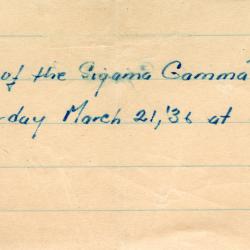 of the Sigama Camma
-day March 21,'36 at